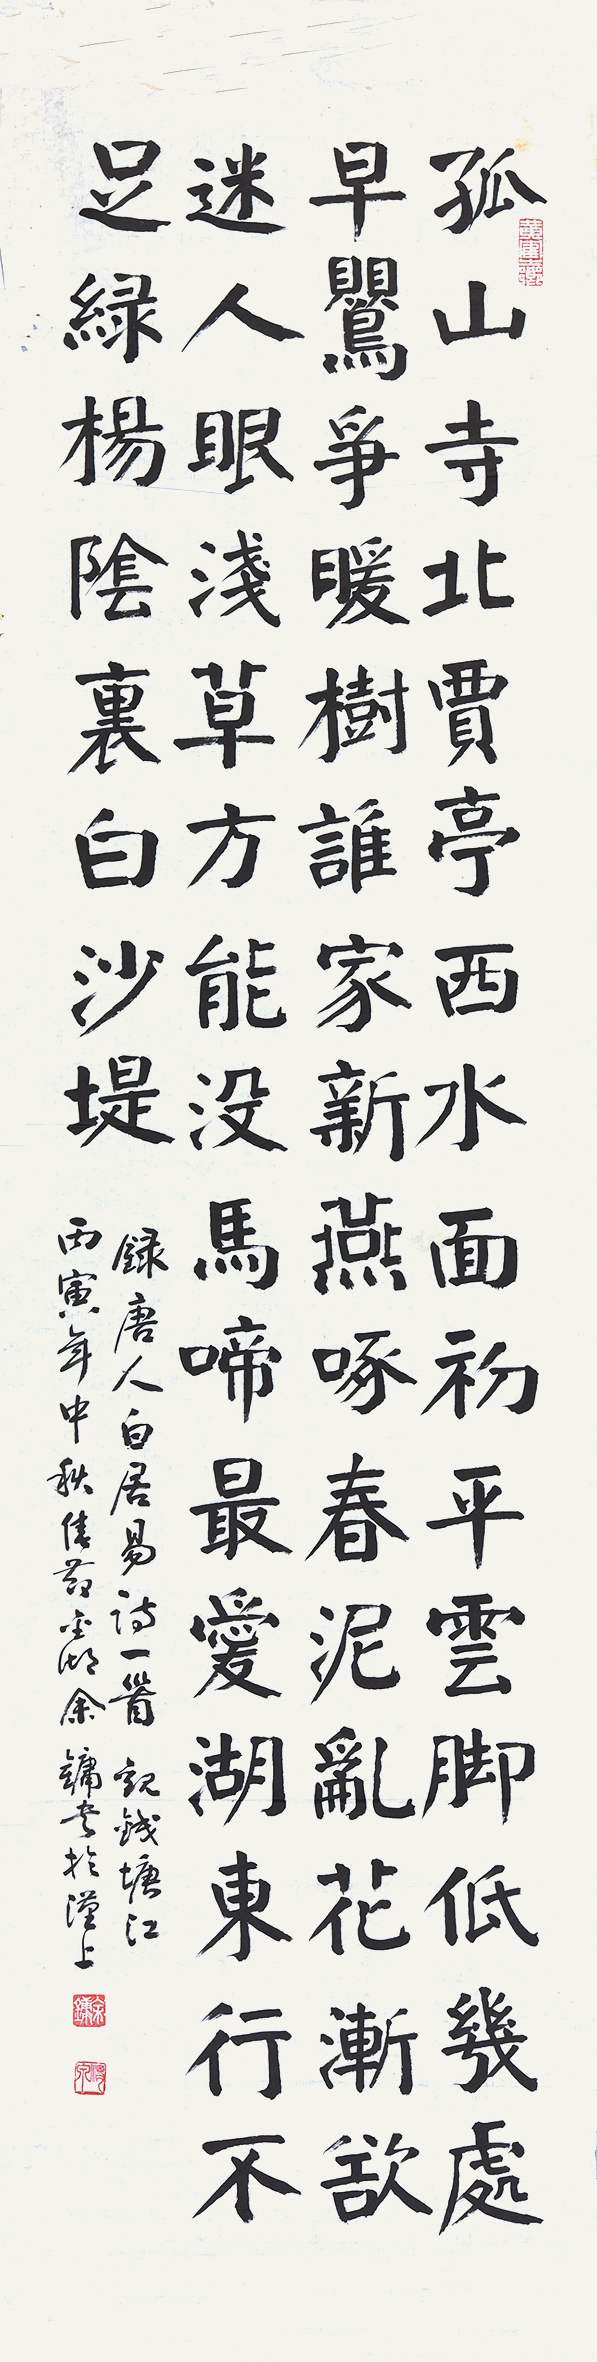 孤山寺北賈亭西水面初平雲脚低幾處
早鸎爭暖樹誰家新燕啄春泥亂花漸欲
迷人眼淺草方能没馬啼最愛湖東行不
足緑楊陰裏白沙堤
録唐人白居易詩一首 觀錢塘江
丙寅年中秋佳節金湖余鏞書於漢上
余鏞